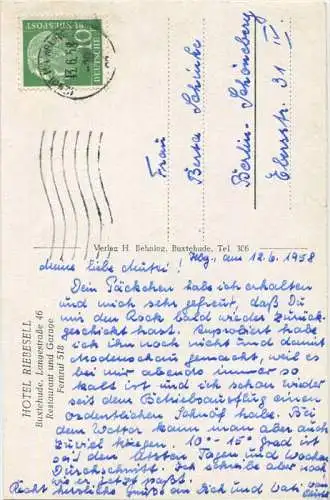 Hbg., am 12.6.1958
Meine liebe Mutti!
Dein Päckchen habe ich erhalten
und mich sehr gefreut, daß Du
mir den Rock bald wieder zurück-
geschickt hast. Anprobiert habe
ich ihn noch nicht und damit
Modenschau gemacht, weil es
bei mir abends immer so
kalt ist und ich schon wieder
seit dem Betriebsausflug einen
ordentlichen Schnöf habe. Bei
dem Wetter kann man aber auch
zuviel kriegen. 10°-15° Grad ist
seit den letzten Tagen und Wochen
Durchschnitt. Ich schreibe aber noch
wie es jetzt paßt.
Recht herzliche Grüße an Dich und Vati
Frau
Berta
Berlin-Schöneberg
Ebersstr. 31 IV.
DEUTSCHE
BUNDESPOST
10
13.6.58
Verlag H. Behning, Buxtehude, Tel. 306
HOTEL RIEBESELL
Buxtehude, Langestraße 46
Restaurant und Garage
Fernruf 518